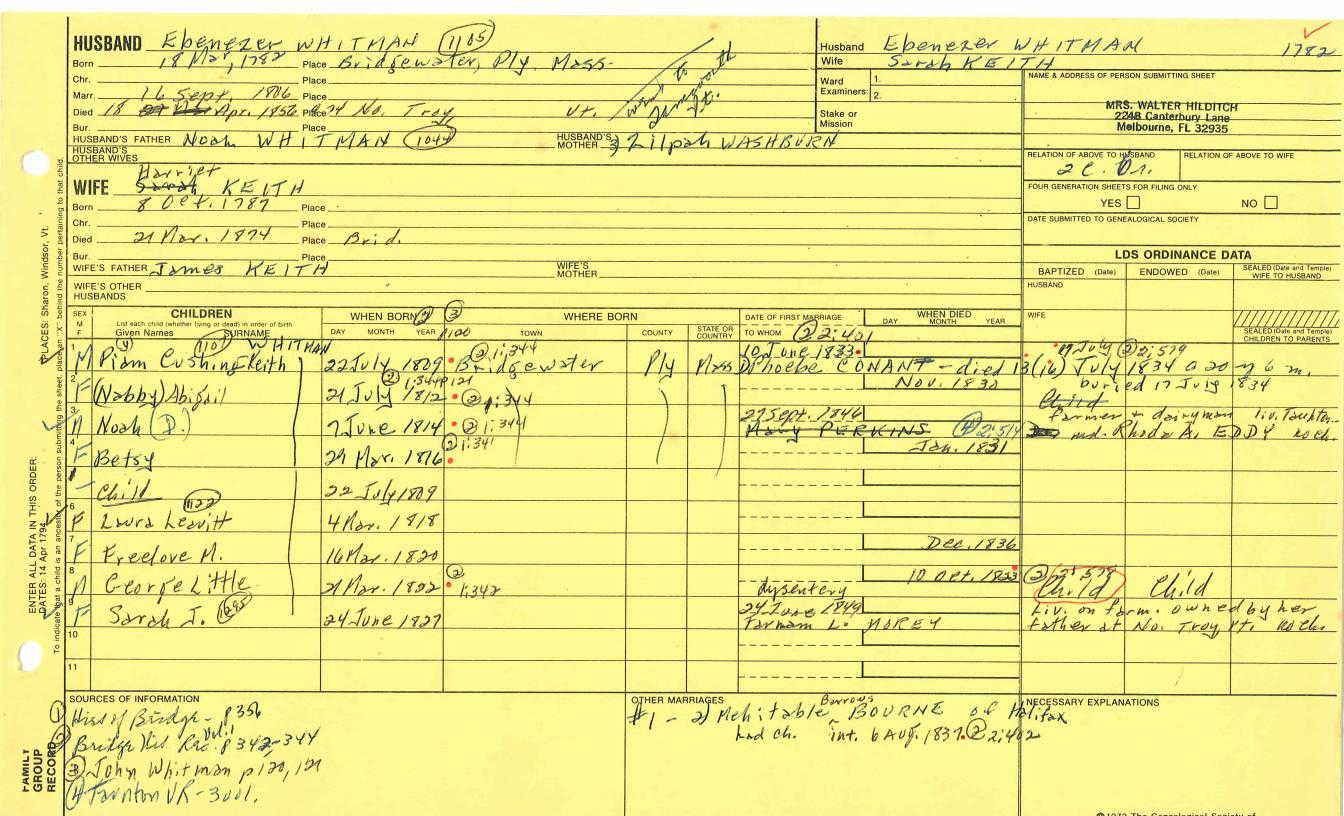 HUSBAND Ebenezer WHITMAN 1105
Born 18 Mar, 1782 Place Bridgewater, Ply. Mass-
Chr. Place
Marr. 16 Sept. 1806 Place
Died 18 Apr. 1856 Place No. Troy, Vt.
went to Vt.
Bur. Place
HUSBAND'S FATHER Noah WHITMAN 1044 HUSBAND'S MOTHER 3) Zilpah WASHBURN
HUSBAND'S OTHER WIVES
Harriet
WIFE Sarah KEITH
Born 8 Oct. 1787 Place
Chr. Place
Died 21 Mar. 1874 Place Brid.
Bur. Place
WIFE'S FATHER James KEITH WIFE'S MOTHER
WIFE'S OTHER HUSBANDS
Husband Ebenezer WHITMAN 1782
Wife Sarah KEITH
Ward Examiners: 1.
2.
Stake or Mission
NAME & ADDRESS OF PERSON SUBMITTING SHEET
MRS. WALTER HILDITCH
224B Canterbury Lane
Melbourne, FL 32935
RELATION OF ABOVE TO HUSBAND RELATION OF ABOVE TO WIFE
2 C.
FOUR GENERATION SHEETS FOR FILING ONLY
YES NO
DATE SUBMITTED TO GENEALOGICAL SOCIETY
LDS ORDINANCE DATA
BAPTIZED (Date) ENDOWED (Date) SEALED (Date and Temple) WIFE TO HUSBAND
HUSBAND
WIFE
SEALED (Date and Temple) CHILDREN TO PARENTS
SEX M F
CHILDREN
List each child (whether living or dead) in order of birth.
Given Names SURNAME
WHEN BORN 2 3
DAY MONTH YEAR
WHERE BORN
TOWN COUNTY STATE OR COUNTRY
DATE OF FIRST MARRIAGE
TO WHOM
WHEN DIED
DAY MONTH YEAR
WHITMAN
1 M Piam Cushing Keith 22 July 1809 2 1:344 Bridgewater Ply Mass 10 June 1833
Phoebe CONANT - died 13(16) July 1834 a 20 y 6 m.
17 July 2 2:579
buried 17 July 1834
2 F (Nabby) Abigail 21 July 1812 2 1:344 Nov. 1830
Child
3 M Noah (D.) 7 June 1814 2 1:344 27 Sept. 1846
Mary PERKINS
farmer & dairyman liv. Taunton
md. Rhoda A. EDDY no ch.
4 F Betsy 29 Mar. 1816 2 1:341 Jan. 1831
Child 22 July 1809
6 F Laura Leavitt 1122 4 Mar. 1818
7 F Freelove M. 16 Mar. 1820 Dec. 1836
8 M George Little 21 Mar. 1822 2 1:342 10 Oct. 1823
dysentery
Child Child
9 F Sarah J. 24 June 1827 24 June 1849
Farnam L. MOREY
Liv. on farm. owned by her
father at No. Troy, Vt. no ch.
10
11
SOURCES OF INFORMATION
1 Hist of Bridge- p 356
2 Bridge Vit. Rec. Vol. 1 p 342-344
3 John Whitman p 120, 121
4 Taunton VR- 3001.
OTHER MARRIAGES
Burrows
#1 - 2) Mehitable BOURNE of Halifax
had ch. int. 6 Aug. 1837. 2 2:402
NECESSARY EXPLANATIONS
ENTER ALL DATA IN THIS ORDER:
DATES: 14 Apr 1794 PLACES: Sharon, Windsor, Vt.
To indicate that a child is an ancestor of the person submitting the sheet, place an "X" behind the number pertaining to that child.
FAMILY GROUP RECORD